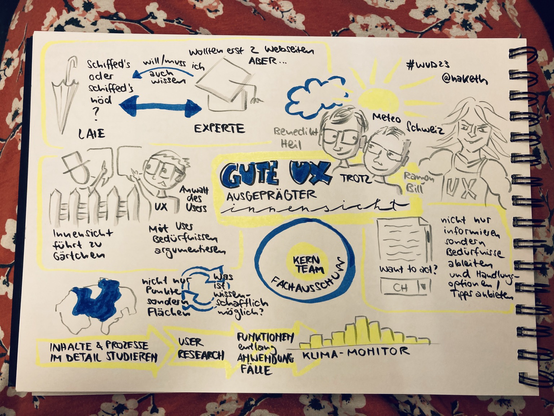 wollten erst 2 Webseiten
ABER...
Schiffed's
oder
schiffed's
nöd
?
LAIE
will/muss ich
auch
wissen
EXPERTE
#WUD23
@naketh
Meteo Schweiz
Benedikt
Heil
Ramon
Gill
UX
GUTE UX
TROTZ
AUSGEPRÄGTER
innensicht
UX
Anwalt
des
Users
Innensicht
führt zu
Gärtchen
Mit User
Bedürfnissen
argumentieren
KERN
TEAM
FACHAUSSCHUSS
want to do?
CH
nicht nur
informieren
sondern
Bedürfnisse
ableiten
und Handlungs-
optionen/
Tipps anbieten
nicht nur
Punkte
sondern
Flächen
was
ist
wissen-
schaftlich
möglich?
INHALTE & PROZESSE
IM DETAIL STUDIEREN
USER
RESEARCH
FUNKTIONEN
entlang
ANWENDUNGS
FÄLLE
KLIMA-MONITOR